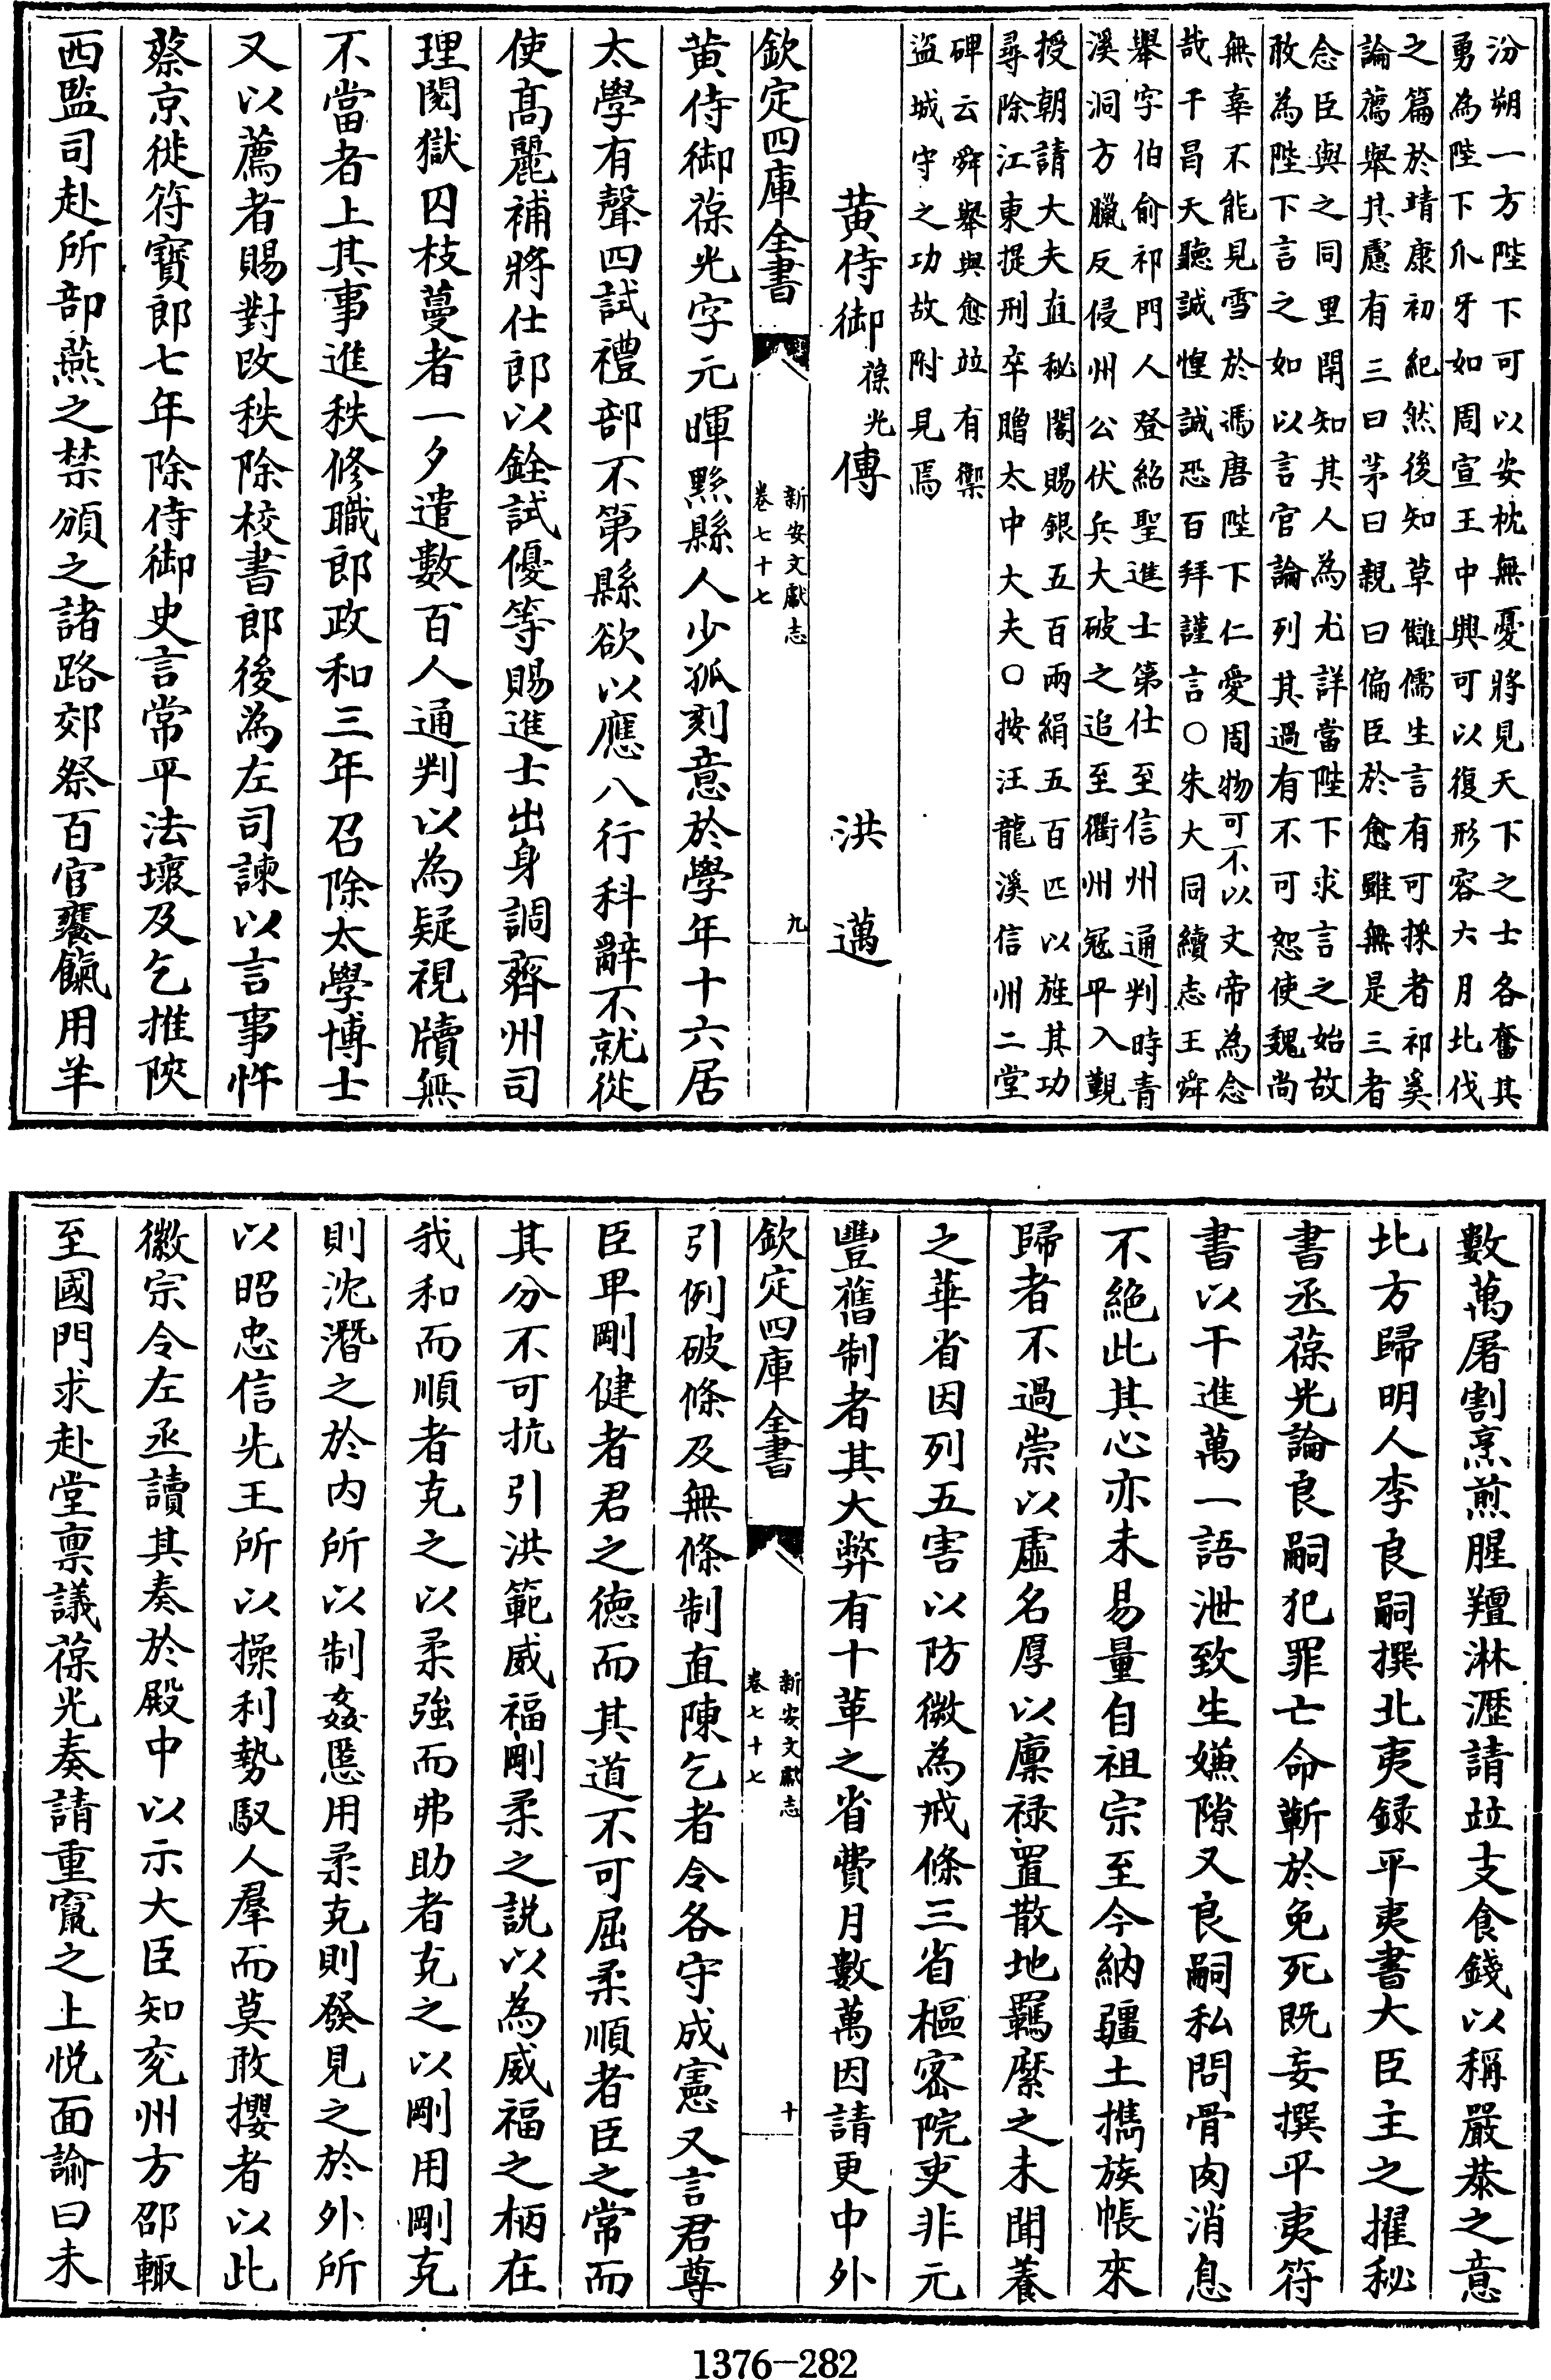 汾朔一方陛下可以安枕無憂將見天下之士各奮其
勇為陛下爪牙如周宣王中興可以復形容六月北伐
之篇於靖康初紀然後知草雠儒生言有可採者祁奚
論薦舉其慝有三曰茅曰親曰偏臣於愈雖無是三者
念臣與之同里閈知其人為尤詳當陛下求言之始故
敢為陛下言之如以言官論列其過有不可恕使魏尚
無辜不能見雪於馮唐陛下仁愛周物可不以文帝為念
哉干冒天聽誠惶誠恐百拜謹言○朱大同續志王舜
舉字伯俞祁門人登紹聖進士第仕至信州通判時青
溪洞方臘反侵州公伏兵大破之追至衢州冦平入覲
授朝請大夫直秘閣賜銀五百兩絹五百匹以旌其功
尋除江東提刑卒贈太中大夫○按汪龍溪信州二堂
碑云舜舉與愈竝有禦
盜城守之功故附見焉
黄侍御葆光傳 洪邁
欽定四庫全書 新安文獻志 卷七十七 九
黄侍御葆光字元暉黟縣人少孤刻意於學年十六居
太學有聲四試禮部不第縣欲以應八行科辭不就從
使髙麗補將仕郎以銓試優等賜進士出身調齊州司
理閱獄囚枝蔓者一夕遣數百人通判以為疑視牘無
不當者上其事進秩修職郎政和三年召除太學博士
又以薦者賜對改秩除校書郎後為左司諫以言事忤
蔡京徙符寶郎七年除侍御史言常平法壞及乞推陝
西監司赴所部燕之禁頒之諸路郊祭百官饔餼用羊
數萬屠割烹煎腥羶淋瀝請竝支食錢以稱嚴恭之意
北方歸明人李良嗣撰北夷録平夷書大臣主之擢秘
書丞葆光論良嗣犯罪亡命蕲於免死既妄撰平夷符
書以干進萬一語泄致生嫌隙又良嗣私問骨肉消息
不絕此其心亦未易量自祖宗至今納疆土攜族帳來
歸者不過崇以虛名厚以廪禄置散地羈縻之未聞養
之華省因列五害以防微為戒條三省樞密院吏非元
豐舊制者其大弊有十革之省費月數萬因請更中外
欽定四庫全書 新安文獻志 卷七十七 十
引例破條及無條制直陳乞者令各守成憲又言君尊
臣卑剛健者君之徳而其道不可屈柔順者臣之常而
其分不可抗引洪範威福剛柔之說以為威福之柄在
我和而順者克之以柔強而弗助者克之以剛用剛克
則沈潛之於内所以制姦慝用柔克則發見之於外所
以昭忠信先王所以操利勢馭人羣而莫敢攖者以此
徽宗令左丞讀其奏於殿中以示大臣知兖州方邵輙
至國門求赴堂禀議葆光奏請重竄之上悦面諭曰未
1376-282